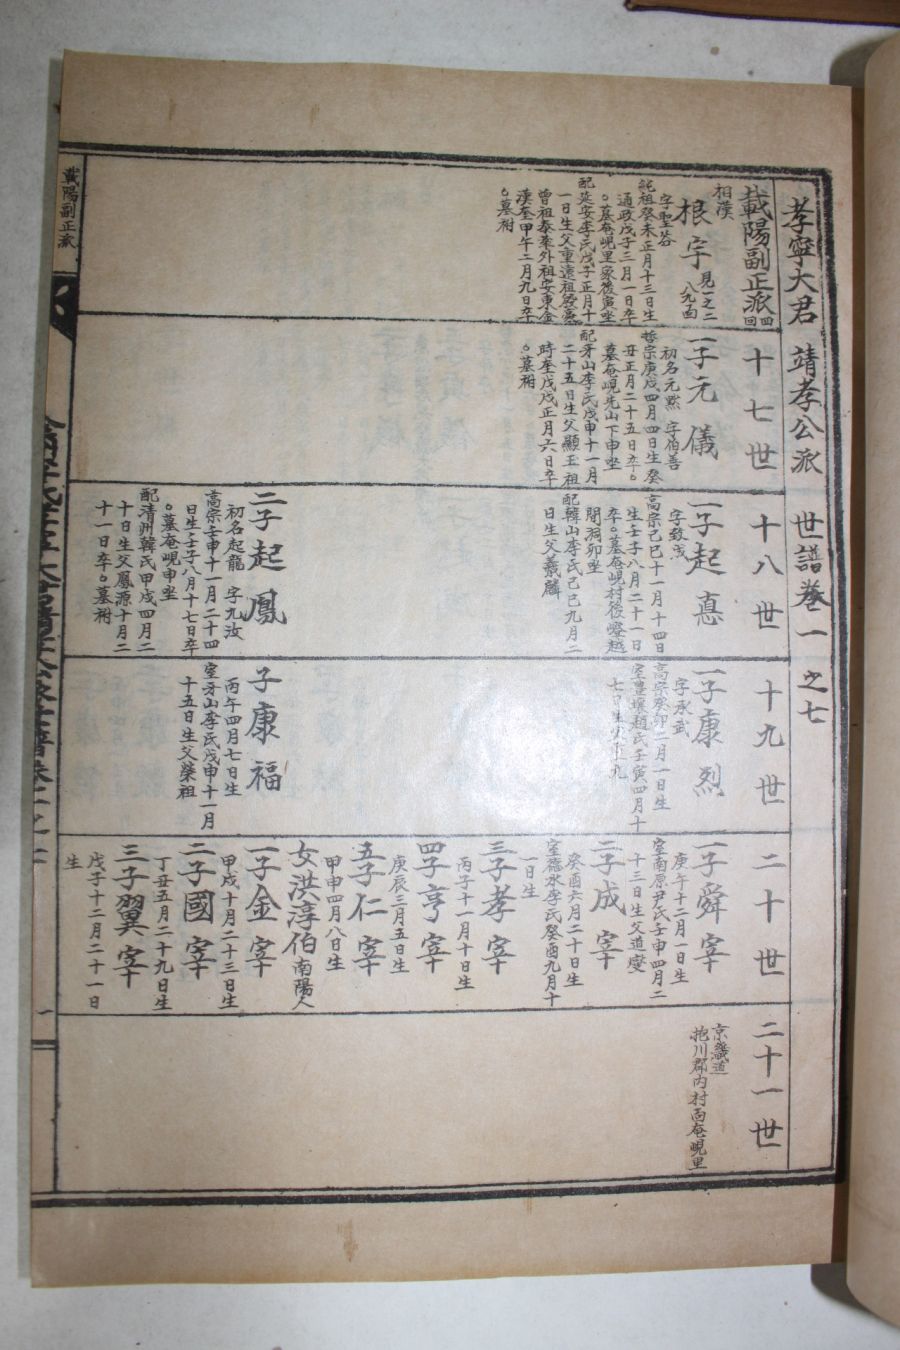 孝寧大君 靖孝公派 世譜卷一之七
載陽副正派 四回
相漢
根宇 見一之二 八九百
字聖若
純祖癸未正月十三日生
通政戊子三月一日卒
○墓庵峴里象後寅坐
配延安李氏戊子正月十
一日生父重遠祖
曾祖泰奉外祖安東金
漢奎甲午二月九日卒
○墓祔
十七世
一子元儀
初名元黙 字伯善
哲宗庚戌四月四日生癸
丑正月二十五日卒○
墓庵峴先山下申坐
配牙山李氏戊申十一月
二十五日生父顯玉祖
時奎戊戌正月六日卒
○墓祔
十八世
一子起悳
字致
高宗己巳十一月十四日
生壬子八月二十一日
卒○墓庵峴村後嶝越
間洞卯坐
配韓山李氏己巳九月二
日生父義麟
二子起鳳
初名起龍 字九汝
高宗壬申十一月二十四
日生壬子八月十七日卒
○墓庵峴申坐
配清州韓氏甲戌四月二
十日生父鳳源十月二
十一日卒○墓祔
十九世
一子康烈
字承武
高宗癸卯二月一日生
室豊壤趙氏壬寅四月十
七日生父
子康福
丙午四月七日生
室牙山李氏戊申十一月
十五日生父榮祖
二十世
一子舜宰
庚午十二月一日生
室南原尹氏壬申四月二
十三日生父道燮
二子成宰
癸酉六月二十日生
室德水李氏癸酉九月十
一日生
三子孝宰
丙子十一月十日生
四子亨宰
庚辰三月五日生
五子仁宰
甲申四月八日生
女洪淳伯 南陽人
一子金宰
甲戌十月二十三日生
二子國宰
丁丑五月二十九日生
三子翼宰
戊子十二月二十一日
生
二十一世
京畿道
抱川郡內村面庵峴里
載陽副正派
一